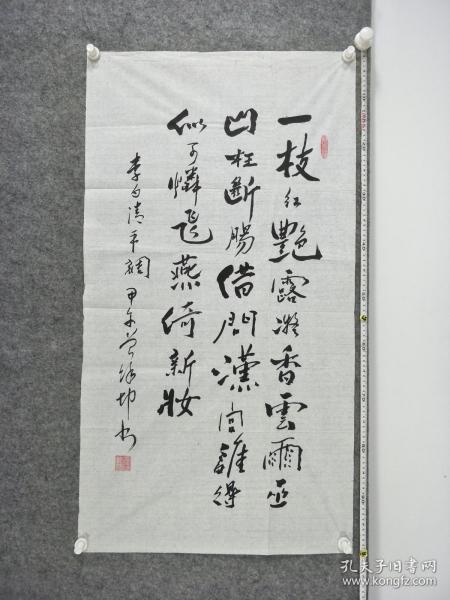 一枝红艷露凝香雲雨巫
山枉断腸借問漢宫誰得
似可憐飞燕倚新妝
李白清平調 甲午 坤书
孔夫子旧书网
www.kongfz.com